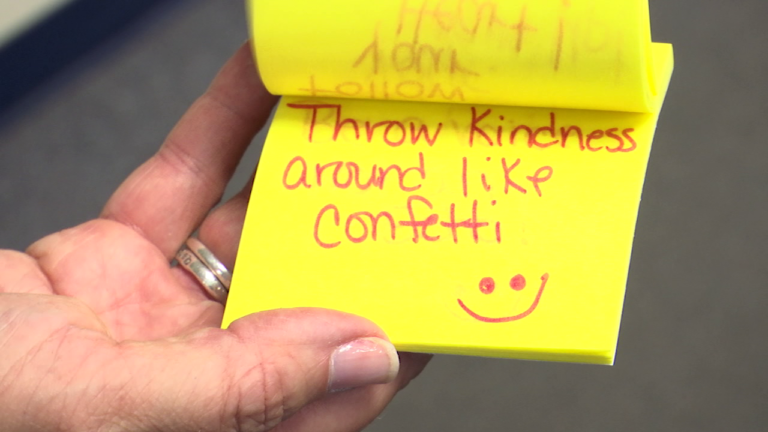 Throw Kindness
around like
confetti